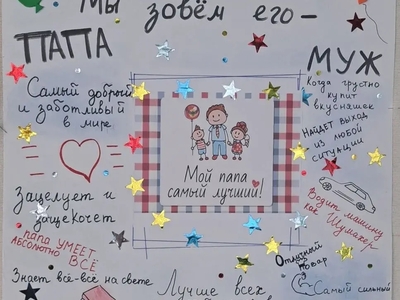 Мы зовём его –
ПАПА
МУЖ
Самый добрый
и заботливый
в мире
Когда грустно
купит
вкусняшек
Найдёт выход
из любой
ситуации
Мой папа
самый лучший!
Зацелует и
защекочет
Водит машину
как Шумахер
ПАПА УМЕЕТ
АБСОЛЮТНО ВСЁ
Отличный
повар
Знает всё-всё на свете
Лучше всех
Самый сильный